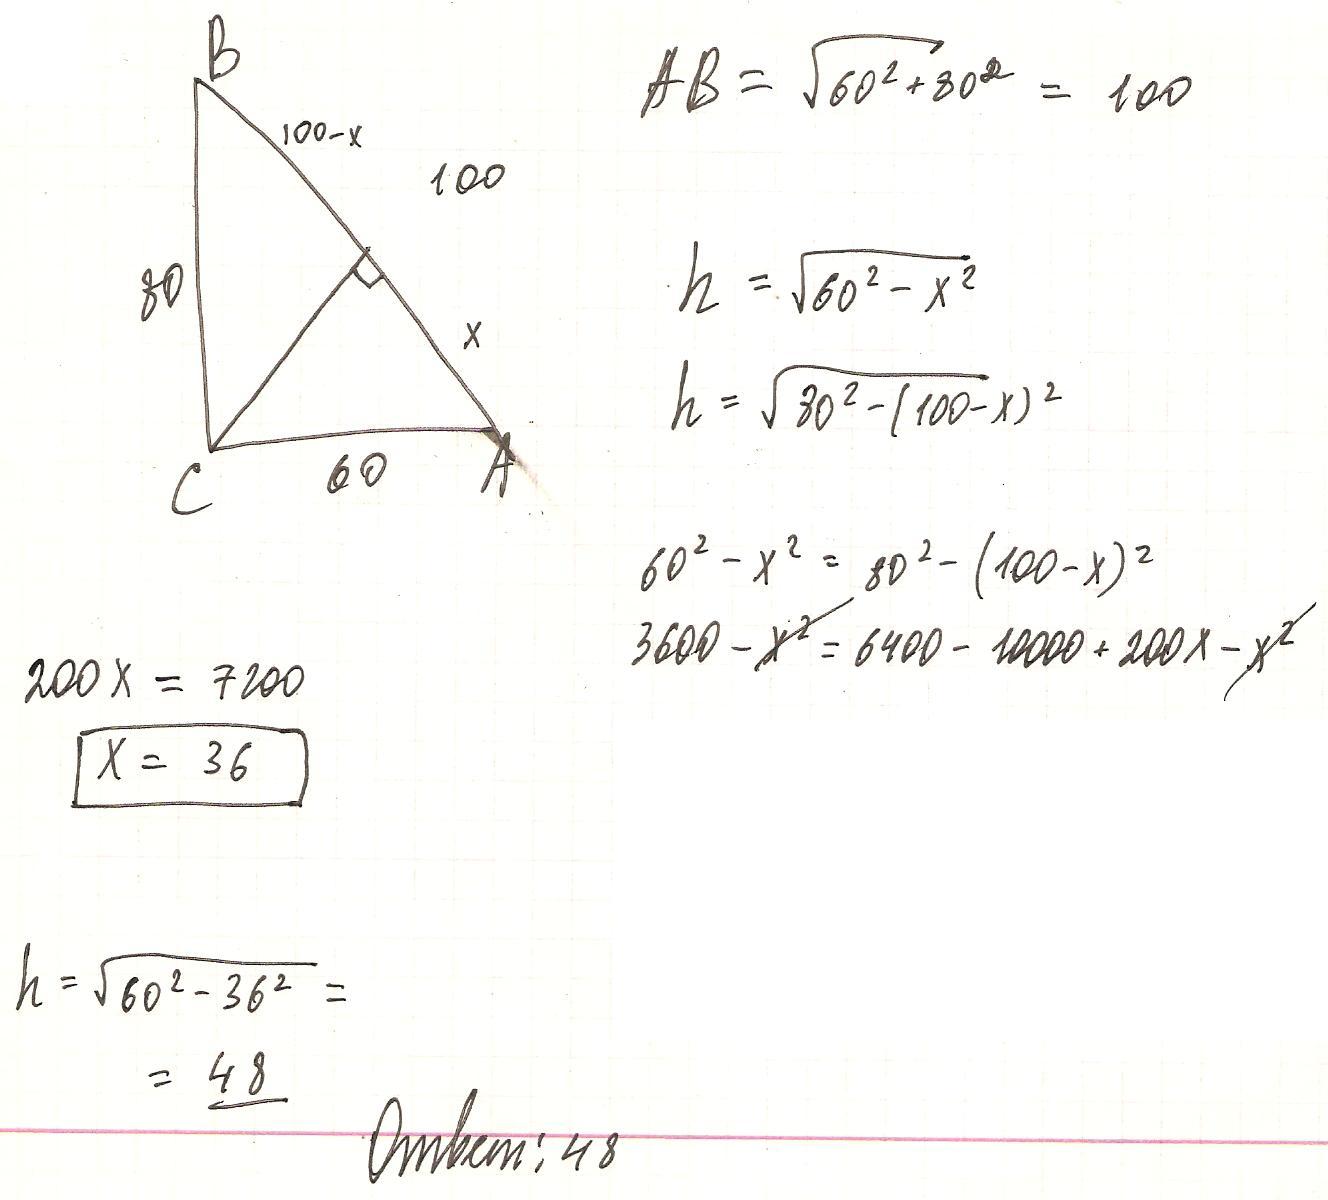 B
100-x
100
80
x
C
60
A
AB = √60² + 80² = 100
h = √60² - x²
h = √80² - (100-x)²
60² - x² = 80² - (100-x)²
3600 - x² = 6400 - 10000 + 200x - x²
200x = 7200
x = 36
h = √60² - 36² =
= 48
Ответ: 48